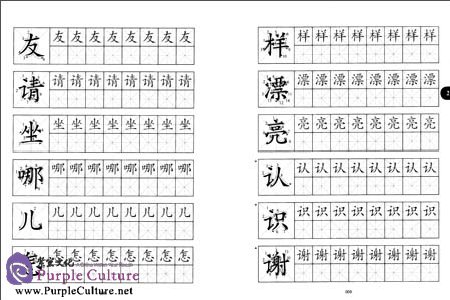 友 友 友 友 友 友 友 友 友
请 请 请 请 请 请 请 请 请
坐 坐 坐 坐 坐 坐 坐 坐 坐
哪 哪 哪 哪 哪 哪 哪 哪 哪
儿 儿 儿 儿 儿 儿 儿 儿 儿
怎 怎 怎 怎 怎 怎 怎 怎 怎
Purple Culture
www.PurpleCulture.net
样 样 样 样 样 样 样 样
漂 漂 漂 漂 漂 漂 漂 漂
亮 亮 亮 亮 亮 亮 亮 亮
认 认 认 认 认 认 认 认
识 识 识 识 识 识 识 识
谢 谢 谢 谢 谢 谢 谢 谢